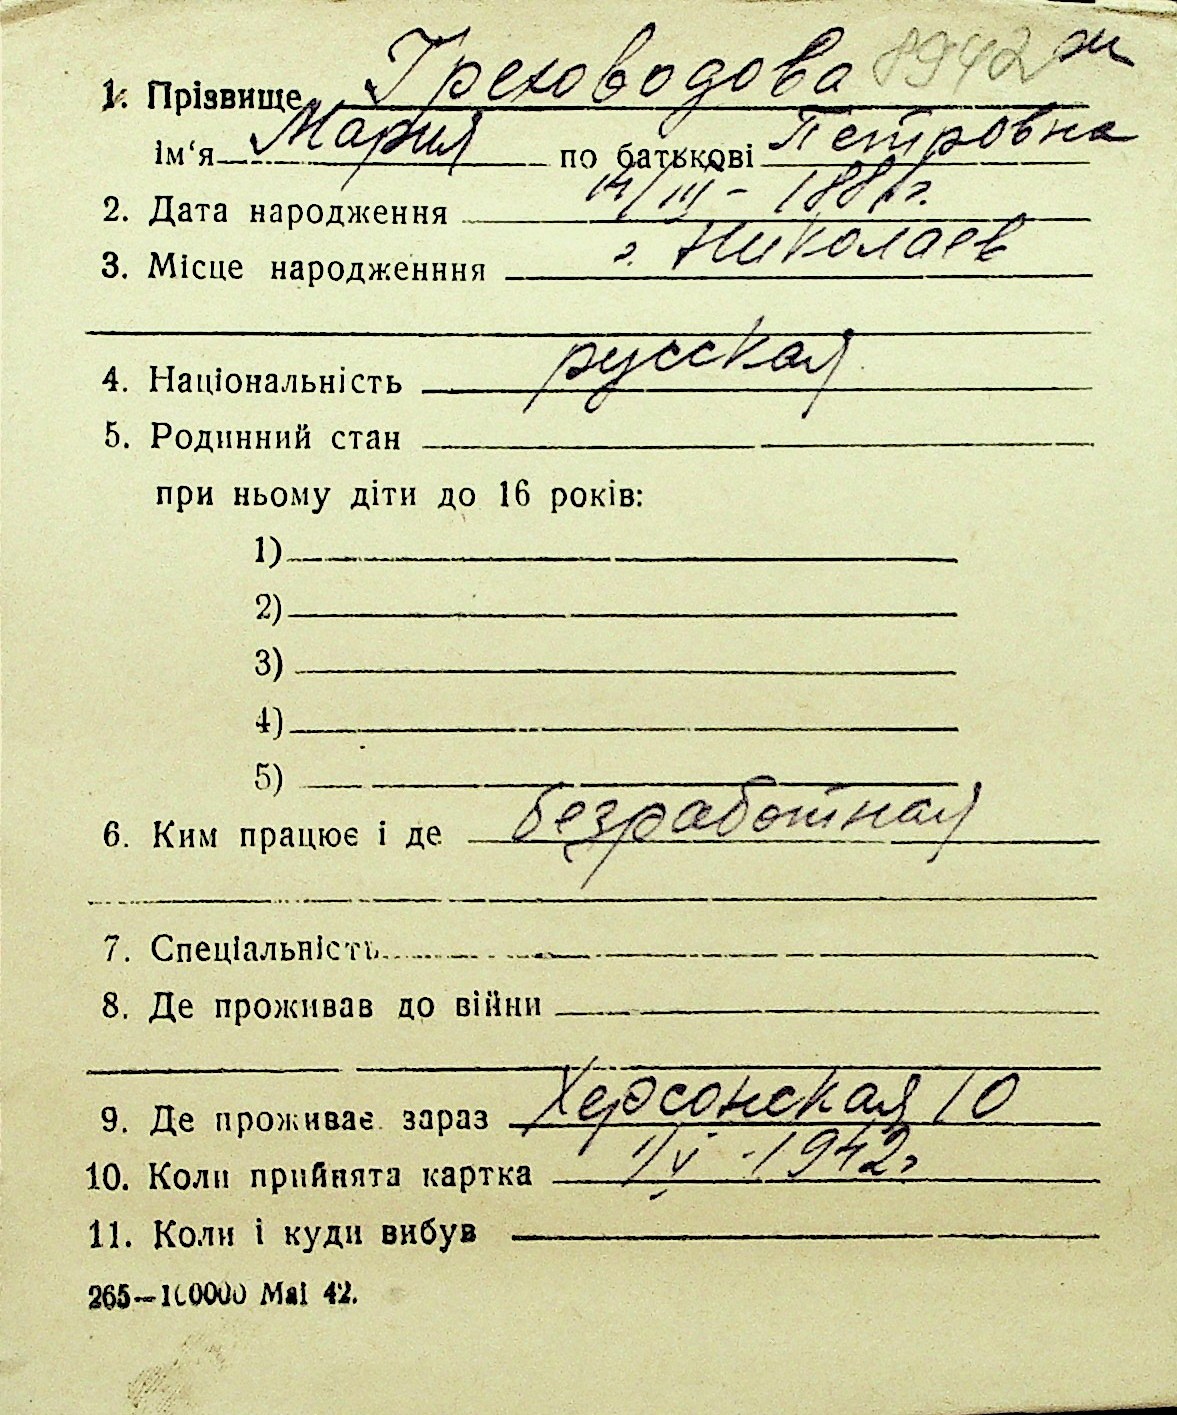 1. Прізвище Греховодова 8942 ж
ім'я Мария по батькові Петровна
2. Дата народження 14/III - 1881 г.
3. Місце народженння г. Николаев
4. Національність русская
5. Родинний стан
при ньому діти до 16 років:
1)
2)
3)
4)
5)
6. Ким працює і де безработная
7. Спеціальність
8. Де проживав до війни
9. Де проживає зараз Херсонская 10
10. Коли прийнята картка 1/V - 1942 г
11. Коли і куди вибув
265—100000 Маі 42.